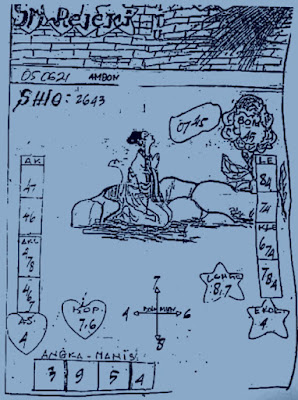 Sri Rejeki
050621 AMBON
SHIO: 2643
07-45
BOM
45
AK
47
46
AKL
2
78
AS
4
KOP
7,6
LE
84
74
KLE
6
74
784
8,7
EKOR
4
7
4
6
8
ANGKA - MANIS
3 9 5 4